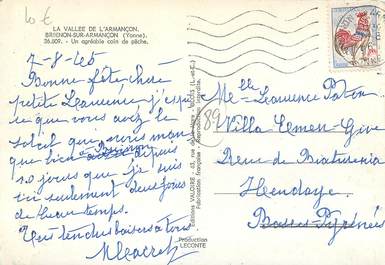 10 €
LA VALLEE DE L'ARMANÇON.
BRIENON-SUR-ARMANÇON (Yonne).
36.809. - Un agréable coin de pêche.
7-8-65
Bonne fête chère
petite Laurence j'espère
que vous avez le
soleil que nous
que bien depuis
10 jours que je suis
ici seulement deux jours
de beau temps.
tendres baisers à tous
Editions VALOIRE - 43, rue BLOIS (L.-et-C.)
Fabrication française - Reproduction interdite.
Production
LECONTE
89
YONNE
Melle Laurence
Villa Emen-Give
Rue de
Hendaye
Basses-Pyrénées